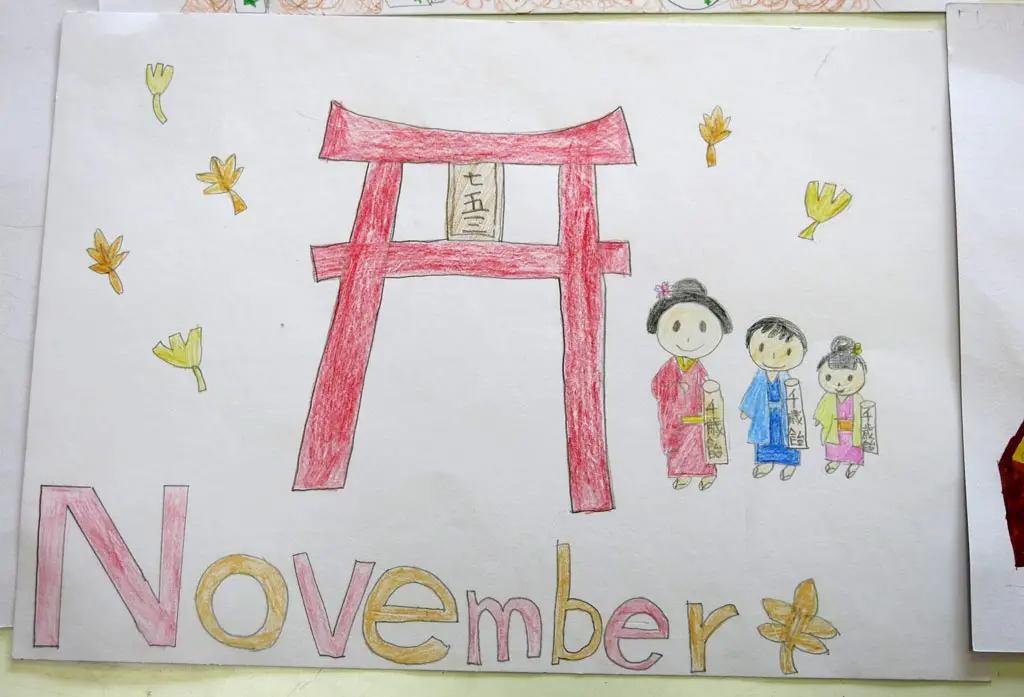 七五三
千歳飴
千歳飴
千歳飴
November